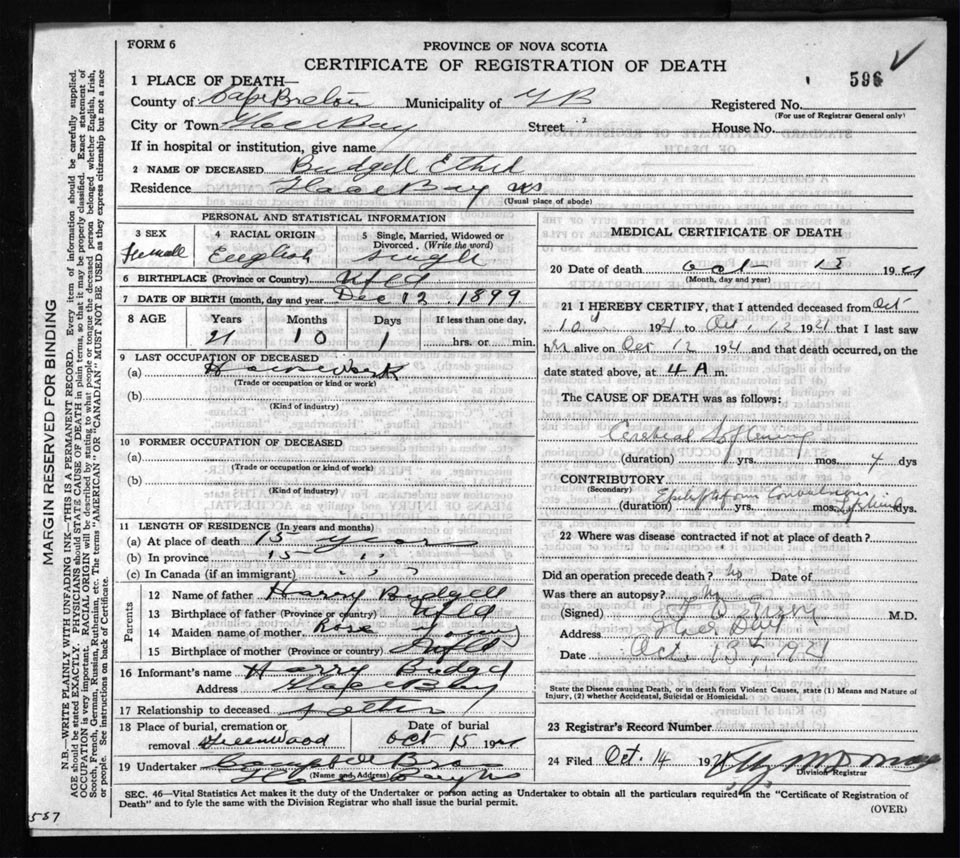 FORM 6
PROVINCE OF NOVA SCOTIA
CERTIFICATE OF REGISTRATION OF DEATH
596
1 PLACE OF DEATH—
County of Cape Breton Municipality of Registered No.
(For use of Registrar General only)
City or Town Glace Bay Street House No.
If in hospital or institution, give name
2 NAME OF DECEASED Budgell Ethel
Residence Glace Bay NS
(Usual place of abode)
PERSONAL AND STATISTICAL INFORMATION
3 SEX
Female
4 RACIAL ORIGIN
English
5 Single, Married, Widowed or Divorced. (Write the word)
Single
6 BIRTHPLACE (Province or Country) Nfld
7 DATE OF BIRTH (month, day and year Dec 12 1899
8 AGE Years Months Days If less than one day,
21 10 1 hrs. or min.
9 LAST OCCUPATION OF DECEASED
(a) Housework
(Trade or occupation or kind or work)
(b)
(Kind of industry)
10 FORMER OCCUPATION OF DECEASED
(a)
(Trade or occupation or kind of work)
(b)
(Kind of industry)
11 LENGTH OF RESIDENCE (In years and months)
(a) At place of death 15 years
(b) In province 15 " "
(c) In Canada (if an immigrant)
Parents
12 Name of father Harry Budgell
13 Birthplace of father (Province or country) Nfld
14 Maiden name of mother Rose Young
15 Birthplace of mother (Province or country) Nfld
16 Informant's name Harry Budgel
Address Glace Bay
17 Relationship to deceased father
18 Place of burial, cremation or Date of burial
removal Greenwood Oct 15 192
19 Undertaker
(Name and Address)
MEDICAL CERTIFICATE OF DEATH
20 Date of death Oct 13 1921
(Month, day and year)
21 I HEREBY CERTIFY, that I attended deceased from Oct
10 1921 to Oct. 12 1921 that I last saw
her alive on Oct 12 1921 and that death occurred, on the
date stated above, at 4 A m.
The CAUSE OF DEATH was as follows:
Cerebral Softening
(duration) yrs. mos. 4 dys
CONTRIBUTORY Epileptiform Convulsions
(Secondary)
(duration) yrs. mos. dys.
22 Where was disease contracted if not at place of death?
Did an operation precede death? No Date of
Was there an autopsy? No
(Signed) M.D.
Address Glace Bay
Date Oct. 13th, 1921
State the Disease causing Death, or in death from Violent Causes, state (1) Means and Nature of
Injury, (2) whether Accidental, Suicidal or Homicidal.
23 Registrar's Record Number
24 Filed Oct. 14 1921
Division Registrar
SEC. 46—Vital Statistics Act makes it the duty of the Undertaker or person acting as Undertaker to obtain all the particulars required in the "Certificate of Registration of
Death" and to fyle the same with the Division Registrar who shall issue the burial permit.
(OVER)
MARGIN RESERVED FOR BINDING
N.B.—WRITE PLAINLY WITH UNFADING INK—THIS IS A PERMANENT RECORD. Every item of information should be carefully supplied.
AGE should be stated EXACTLY. PHYSICIANS should STATE CAUSE OF DEATH in plain terms, so that it may be properly classified. Exact statement of
OCCUPATION is very important. RACIAL ORIGIN will be described by stating to what people or tongue the deceased person belonged whether English, Irish,
Scotch, French, German, Russian, Ruthenian, etc. The terms "AMERICAN" OR "CANADIAN" MUST NOT BE USED as they express citizenship but not a race
or people. See instructions on back of Certificate.
557